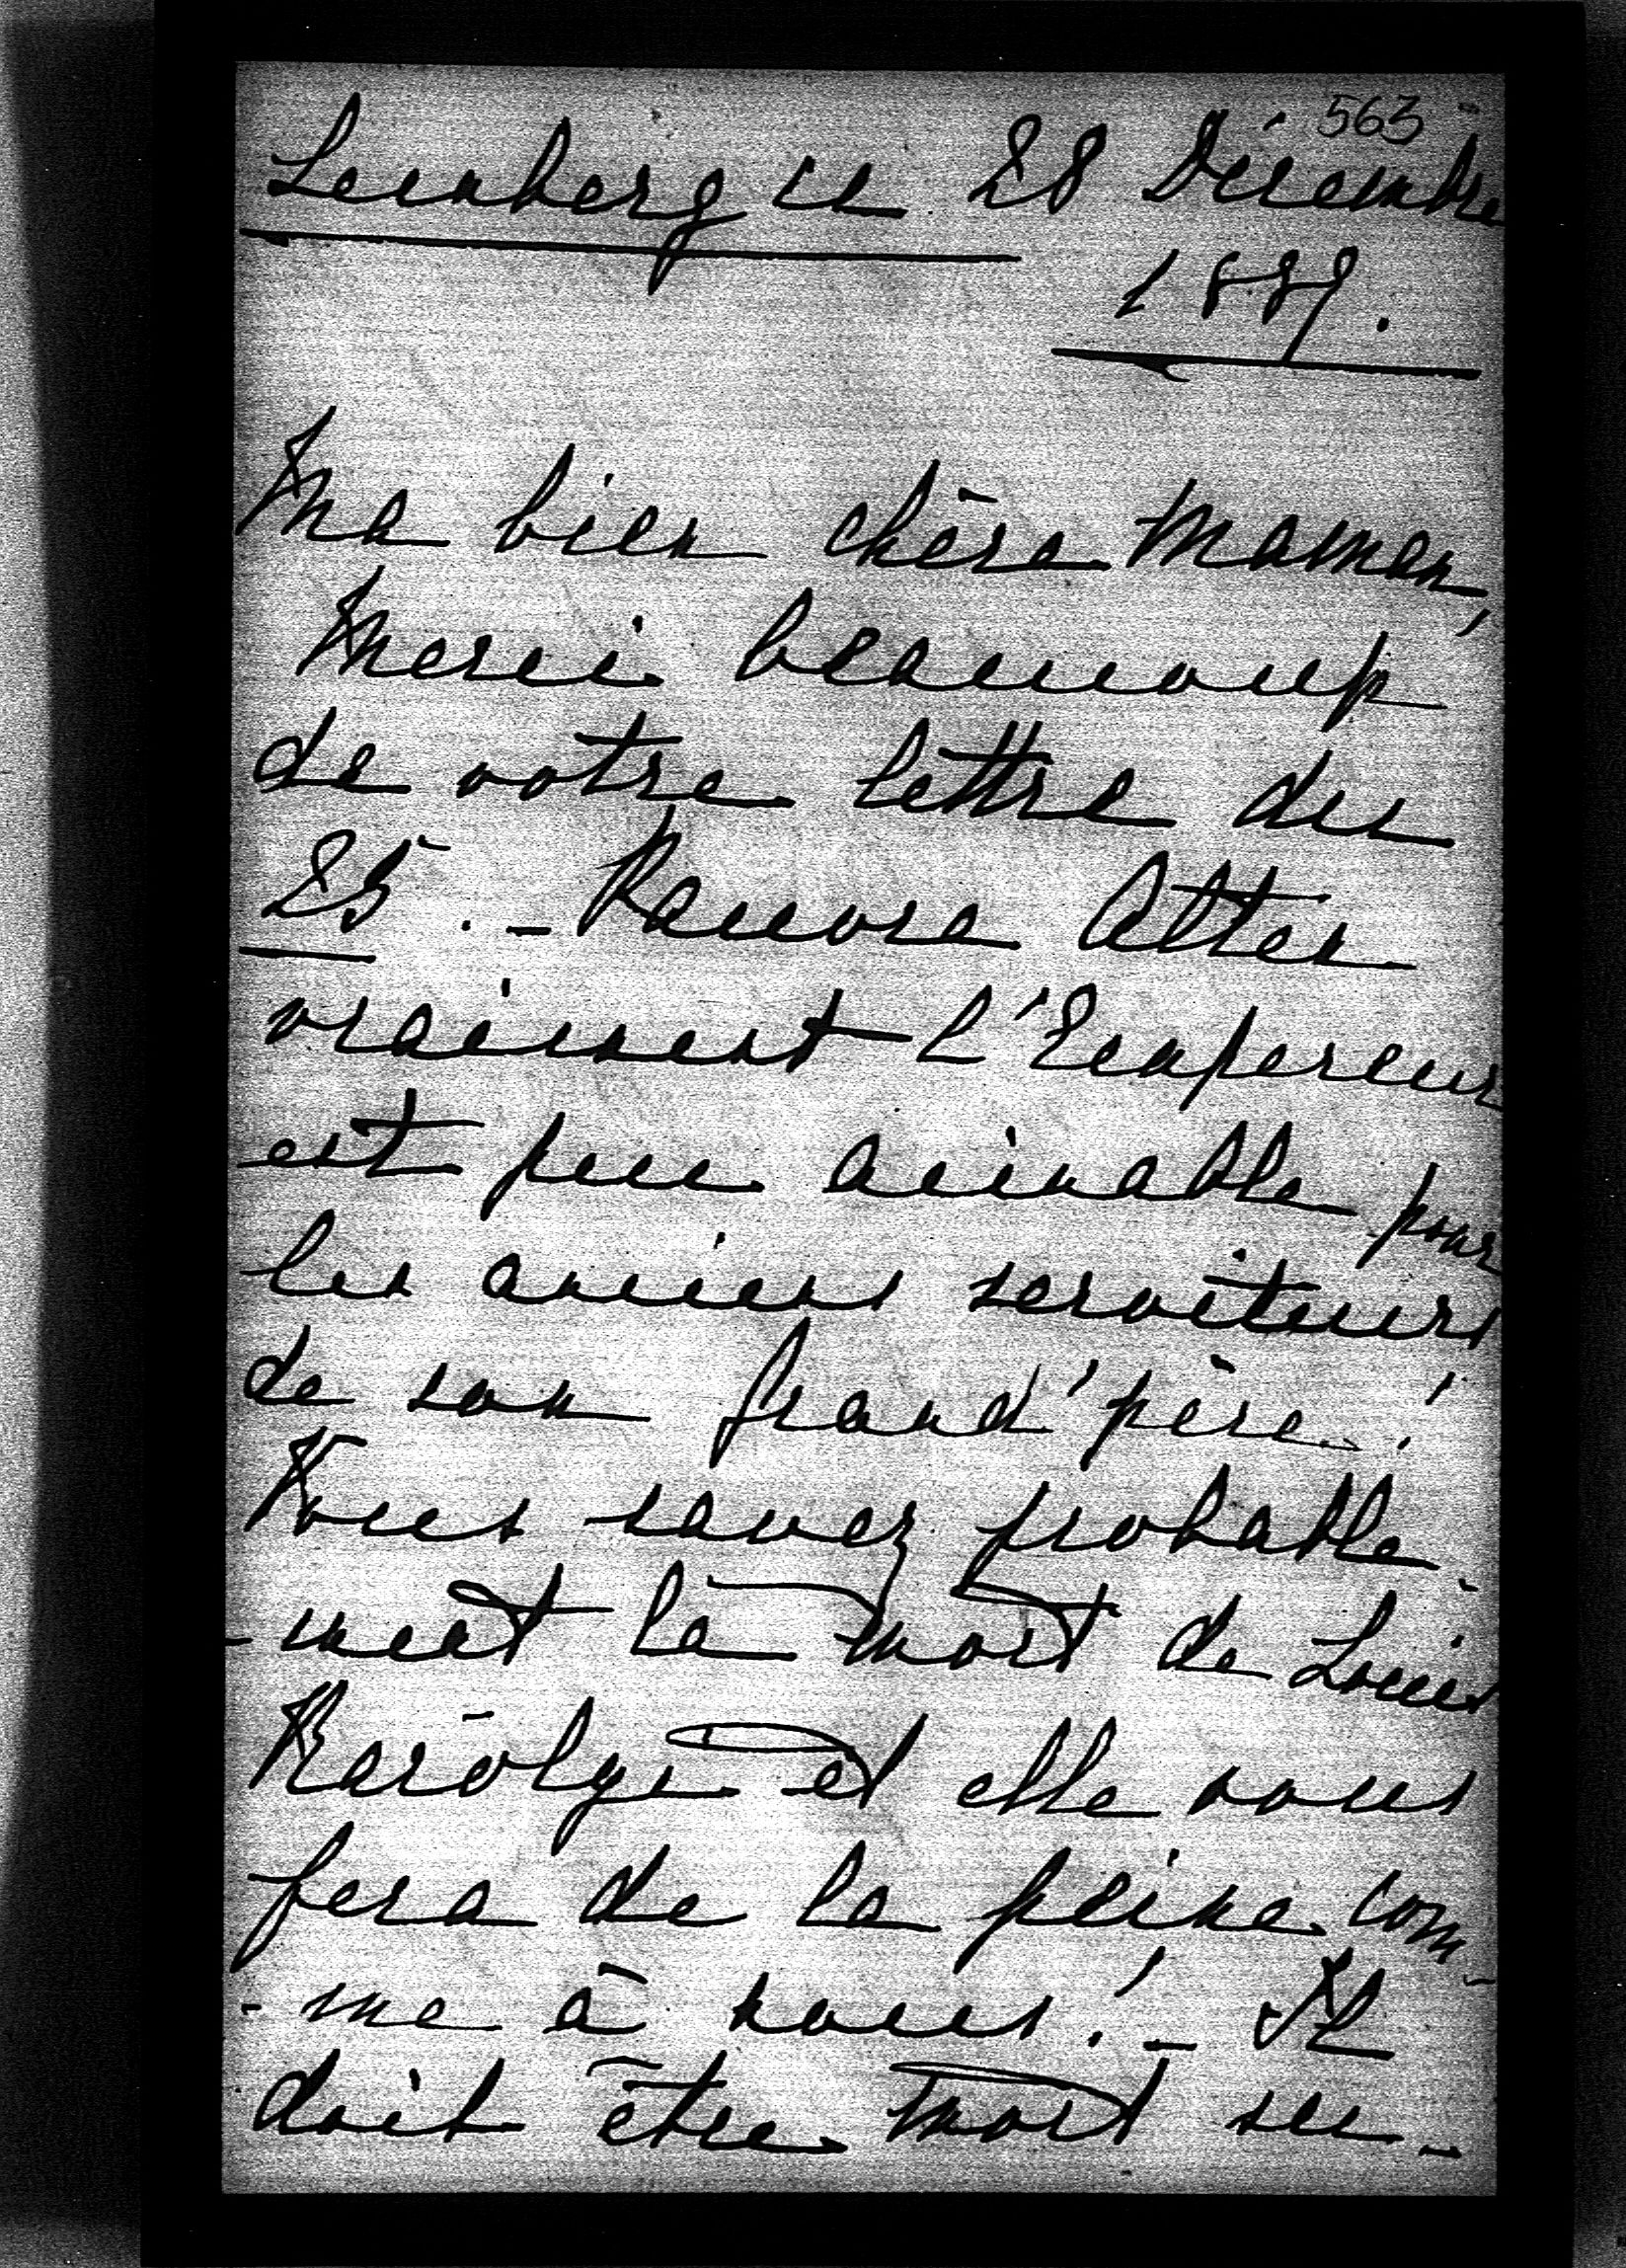 563
Lemberg ce 28 Décembre
1889.
Ma bien chère Maman,
Merci beaucoup
de votre lettre du
25. – Pauvre Atten
vraiment l'Empereur
est peu aimable pour
les anciens serviteurs
de son Grand'père!
Vous savez probable-
-ment la mort de Louis
Károlyi et elle vous
fera de la peine com-
-me à nous! – Il
doit être mort su-